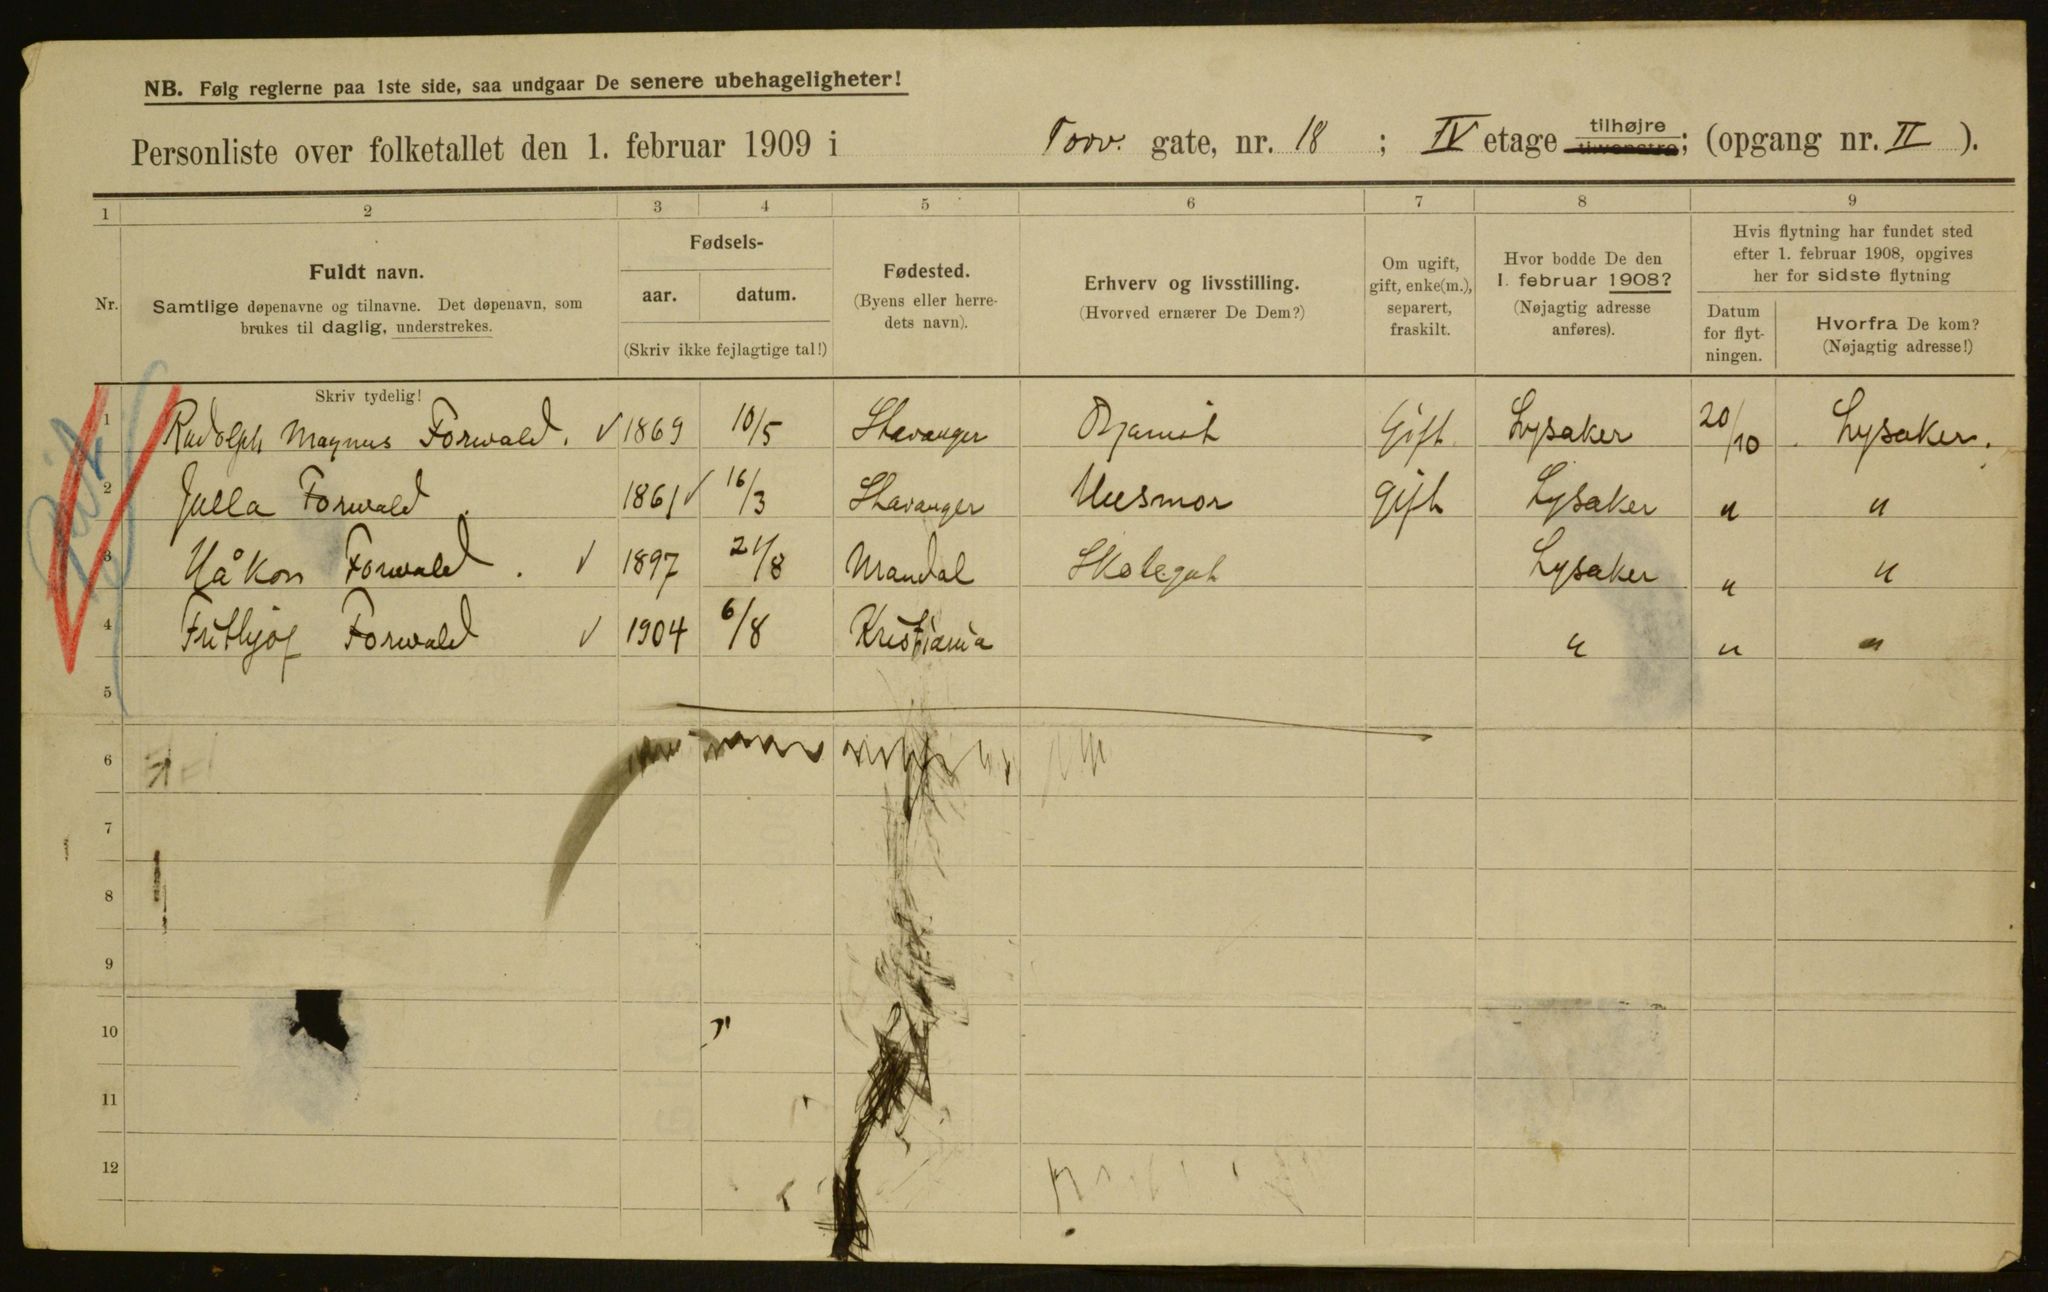 NB. Følg reglerne paa 1ste side, saa undgaar De senere ubehageligheter!
Personliste over folketallet den 1. februar 1909 i Torv. gate, nr. 18 ; IV etage tilhøjre tilvenstre; (opgang nr. II ).
1 2 3 4 5 6 7 8 9
Nr. Fuldt navn. Samtlige døpenavne og tilnavne. Det døpenavn, som brukes til daglig, understrekes.
Fødsels- aar. datum. (Skriv ikke fejlagtige tal!)
Fødested. (Byens eller herredets navn).
Erhverv og livsstilling. (Hvorved ernærer De Dem?)
Om ugift, gift, enke(m.), separert, fraskilt.
Hvor bodde De den 1. februar 1908? (Nøjagtig adresse anføres).
Hvis flytning har fundet sted efter 1. februar 1908, opgives her for sidste flytning
Datum for flytningen. Hvorfra De kom? (Nøjagtig adresse!)
Skriv tydelig!
1 Rudolph Magnus Forwald. √ 1869 10/5 Stavanger Gift Lysaker 20/10 Lysaker.
2 Julla Forwald 1861 √ 16/3 Stavanger Husmor gift Lysaker " "
3 Håkon Forwald. √ 1897 21/8 Mandal Skolegut Lysaker " "
4 Frithjof Forwald √ 1904 6/8 Kristiania " " "
5
6
7
8
9
10
11
12